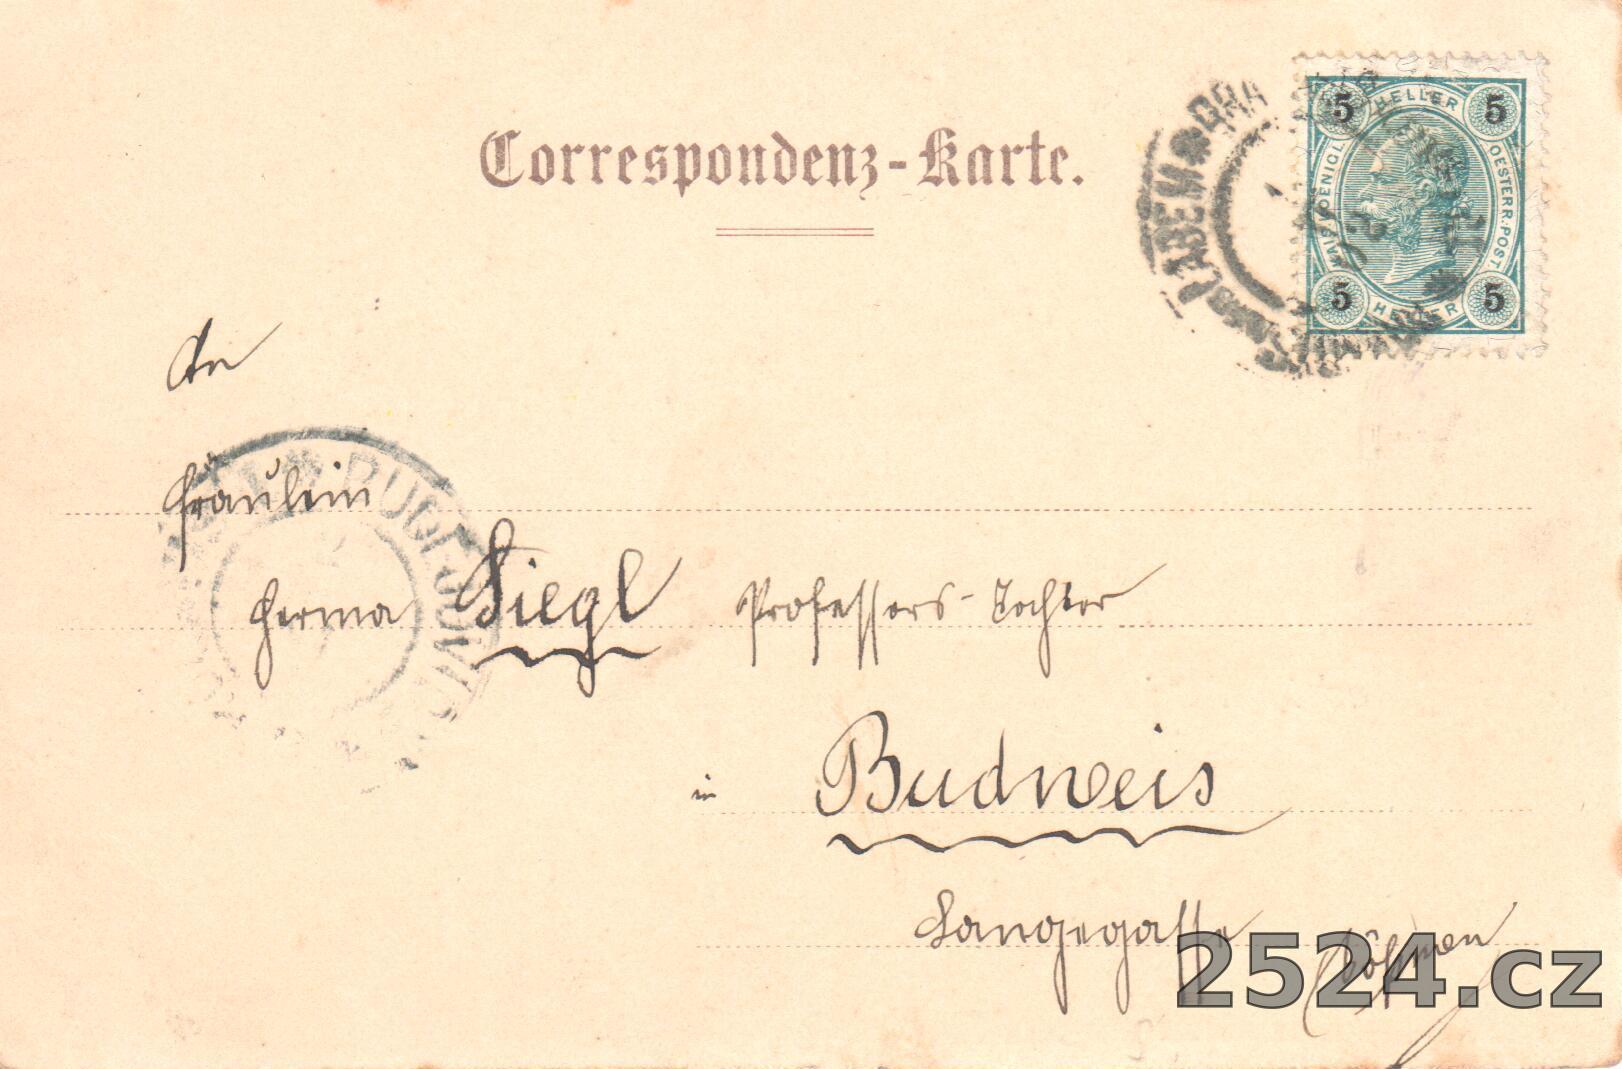 Correspondenz-Karte.
5 HELLER 5
KAIS. KOENIGL. OESTERR. POST.
5 HELLER 5
LABEM
An
Fräulein
BUDĚJOVIC
Herma Siegl Professors-Tochter
in Budweis
Langegasse Böhmen
2524.cz